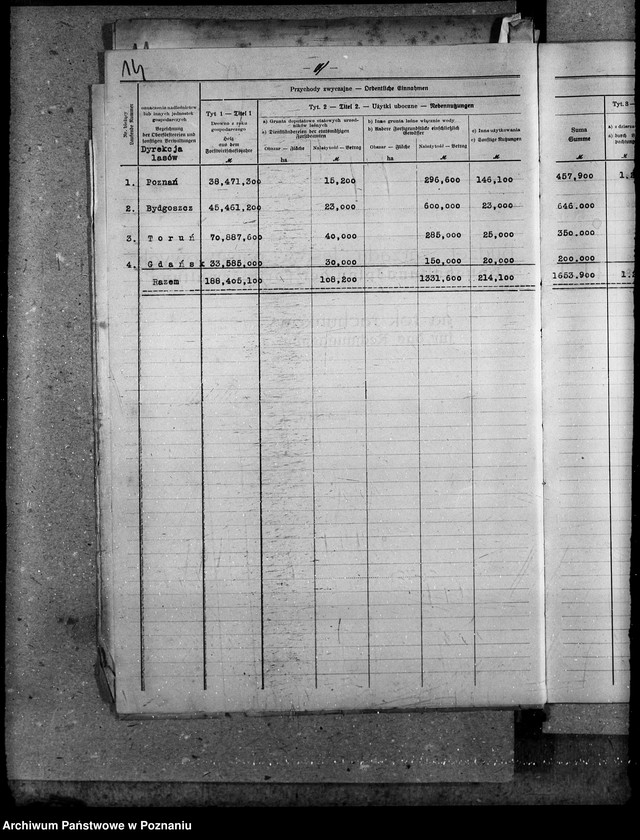 14
Przychody zwyczajne — Ordentliche Einnahmen
Nr. bieżący
Laufende Nummer
oznaczenie nadleśnictwa
lub innych jednostek
gospodarczych
Bezeichnung
der Oberförstereien und
sonstigen Verwaltungen
Dyrekcja
lasów
Tyt 1 — Titel 1
Drewno z roku
gospodarczego
Holz
aus dem
Forstwirtschaftsjahre
M
Tyt. 2 — Titel 2. — Użytki uboczne — Nebennutzungen
a) Grunta deputatowe etatowych urzędników leśnych
a) Dienstländereien der etatmäßigen
Forstbeamten
Obszar — Fläche
ha
Należytość — Betrag
M
b) Inne grunta leśne włącznie wody
b) Andere Forstgrundstücke einschließlich
Gewässer
Obszar — Fläche
ha
Należytość — Betrag
M
c) Inne użytkowania
c) Sonstige Nutzungen
M
Suma
Summe
M
Tyt. 3 —
1. Poznań 38,471,300 15,200 296,600 146,100 457,900
2. Bydgoszcz 45,461,200 23,000 600,000 23,000 646.000
3. Toruń 70,887,600 40,000 285,000 25,000 350.000
4. Gdańsk 33,585,000 30,000 150,000 20,000 200.000
Razem 188,405,100 108,200 1331,600 214,100 1653.900
Archiwum Państwowe w Poznaniu